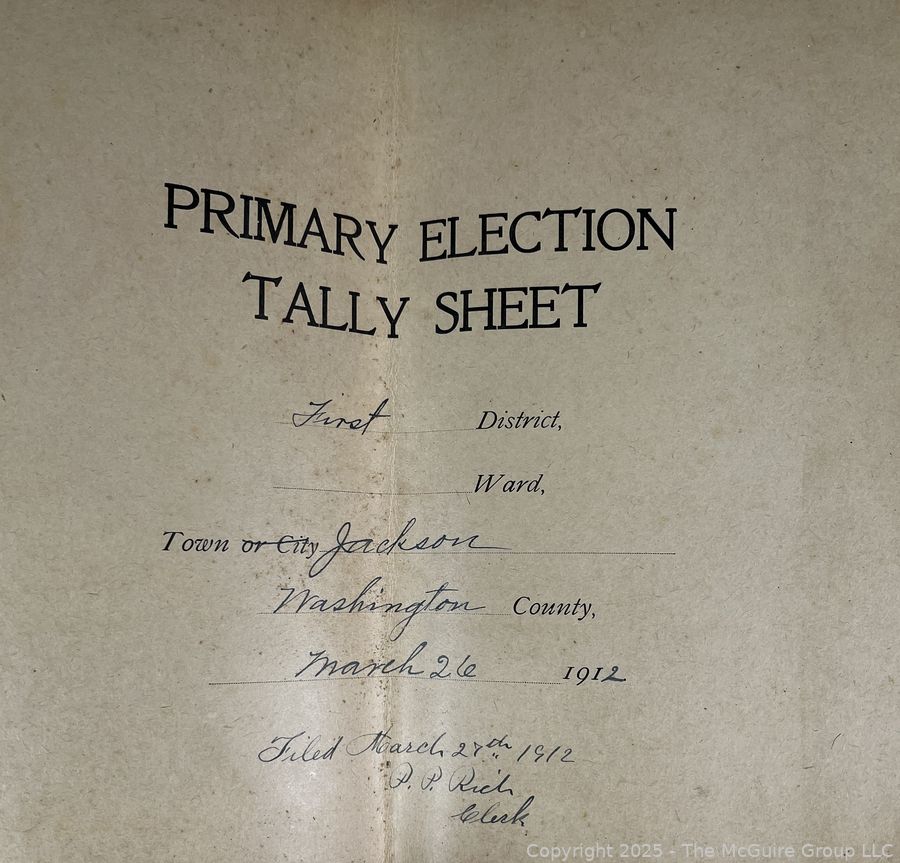 PRIMARY ELECTION
TALLY SHEET
First District,
Ward,
Town or City Jackson
Washington County,
March 26 1912
Filed March 27th 1912
P. P. Rich
Clerk
Copyright 2025 - The McGuire Group LLC